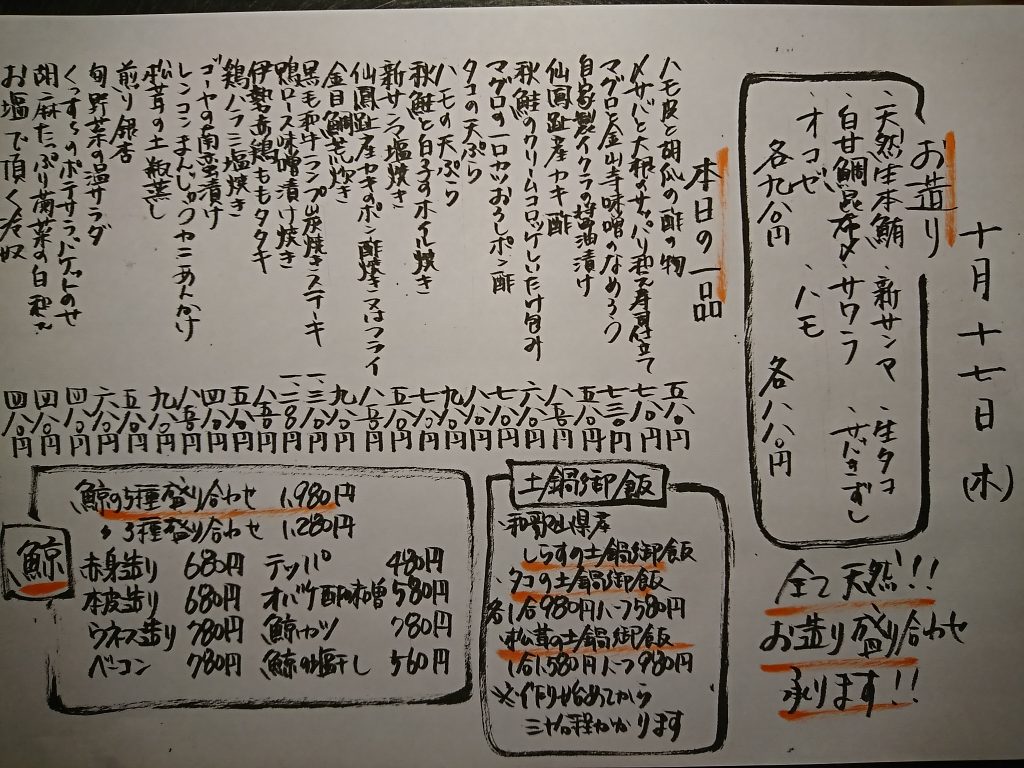 十月十七日(木)
お造り
・天然生本鮪 ・新サンマ ・生タコ
・白甘鯛昆布〆 ・サワラ ・サバきずし
・オコゼ ・ハモ
各九八〇円 各八八〇円
全て天然!!
お造り盛り合わせ
承ります!!
本日の一品
ハモ皮と胡瓜の酢の物 五八〇円
〆サバと大根のサッパリ和え寿司仕立て 七八〇円
マグロと金山寺味噌のなめろう 七三〇円
自家製イクラの醤油漬け 五八〇円
仙鳳趾産カキ酢 八八〇円
秋鮭のクリームコロッケしいたけ包み 六八〇円
マグロの一口カツおろしポン酢 七八〇円
タコの天ぷら 九八〇円
ハモの天ぷら 七八〇円
秋鮭と白子のホイル焼き
新サンマ塩焼き 五八〇円
仙鳳趾産カキのポン酢焼き又はフライ 八八〇円
金目鯛荒炊き 九八〇円
黒毛和牛ランプ炭焼きステーキ 一、三八〇円
鴨ロース味噌漬け焼き 一、二八〇円
伊勢赤鶏ももタタキ 八五〇円
鶏ハラミ塩焼き 五八〇円
ゴーヤの南蛮漬け 四八〇円
レンコンまんじゅうカニあんかけ 八八〇円
松茸の土瓶蒸し 九八〇円
煎り銀杏 五八〇円
旬野菜の温サラダ 六八〇円
くっすんのポテサラバゲットのせ 四八〇円
胡麻たっぷり菊菜の白和え 四八〇円
お塩で頂く冷奴 四八〇円
土鍋御飯
・和歌山県産
しらすの土鍋御飯
・タコの土鍋御飯
各1合980円ハーフ580円
・松茸の土鍋御飯
1合1,580円ハーフ980円
※作り始めてから
三十分程かかります
鯨
鯨の5種盛り合わせ 1,980円
〃 3種盛り合わせ 1,280円
赤身造り 680円 テッパ 480円
本皮造り 680円 オバケ酢味噌 580円
ウネス造り 780円 鯨カツ 780円
ベーコン 780円 鯨の塩干し 560円